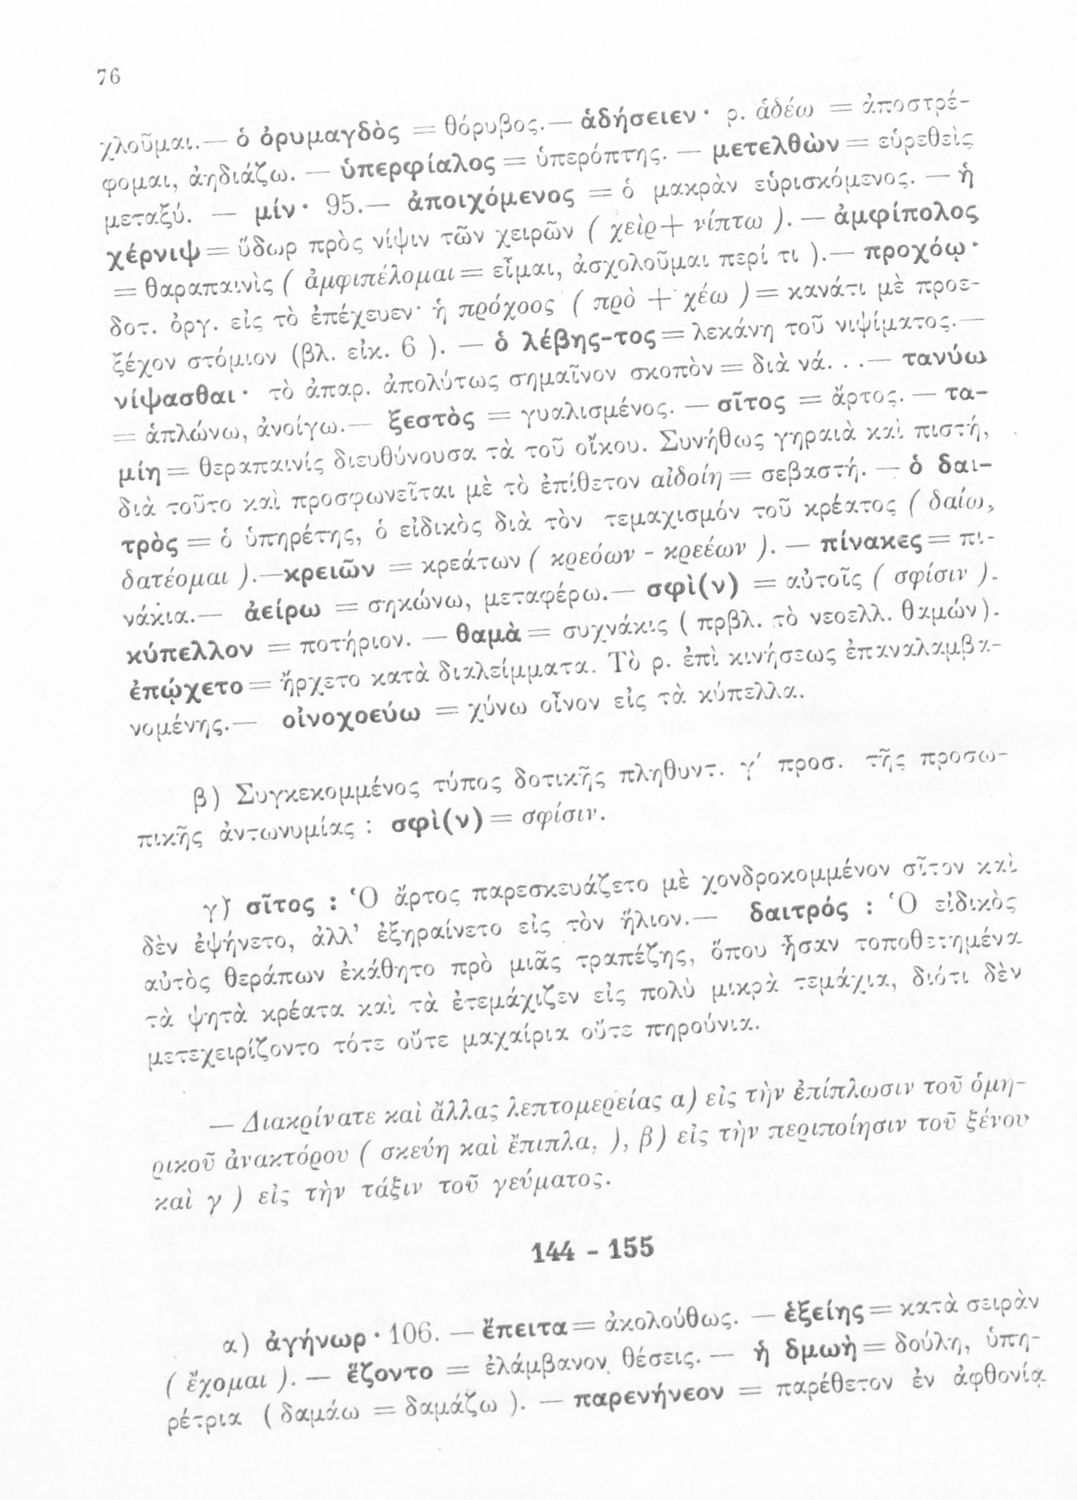 76
χλοῦμαι.— ὁ ὀρυμαγδὸς = θόρυβος.— ἁδήσειεν· ρ. ἁδέω = ἀποστρέ-
φομαι, ἀηδιάζω. — ὑπερφίαλος = ὑπερόπτης. — μετελθὼν = εὑρεθεὶς
μεταξύ. — μίν· 95.— ἀποιχόμενος = ὁ μακρὰν εὑρισκόμενος. — ἡ
χέρνιψ = ὕδωρ πρὸς νίψιν τῶν χειρῶν ( χεὶρ + νίπτω ). — ἀμφίπολος
= θαραπαινὶς ( ἀμφιπέλομαι = εἶμαι, ἀσχολοῦμαι περί τι ).— προχόῳ·
δοτ. ὀργ. εἰς τὸ ἐπέχευεν· ἡ πρόχοος ( πρὸ + χέω ) = κανάτι μὲ προε-
ξέχον στόμιον (βλ. εἰκ. 6 ). — ὁ λέβης-τος = λεκάνη τοῦ νιψίματος.—
νίψασθαι· τὸ ἀπαρ. ἀπολύτως σημαῖνον σκοπὸν = διὰ νά. . .— τανύω
= ἁπλώνω, ἀνοίγω.— ξεστὸς = γυαλισμένος. — σῖτος = ἄρτος. — τα-
μίη = θεραπαινίς διευθύνουσα τὰ τοῦ οἴκου. Συνήθως γηραιὰ καὶ πιστή,
διὰ τοῦτο καὶ προσφωνεῖται μὲ τὸ ἐπίθετον αἰδοίη = σεβαστή. — ὁ δαι-
τρὸς = ὁ ὑπηρέτης, ὁ εἰδικὸς διὰ τὸν τεμαχισμόν τοῦ κρέατος ( δαίω,
δατέομαι ).—κρειῶν = κρεάτων ( κρεόων - κρεέων ). — πίνακες = πι-
νάκια.— ἀείρω = σηκώνω, μεταφέρω.— σφὶ(ν) = αὐτοῖς ( σφίσιν ).
κύπελλον = ποτήριον. — θαμὰ = συχνάκις ( πρβλ. τὸ νεοελλ. θαμών).
ἐπῴχετο = ἤρχετο κατὰ διαλείμματα. Τὸ ρ. ἐπὶ κινήσεως ἐπαναλαμβα-
νομένης.— οἰνοχοεύω = χύνω οἶνον εἰς τὰ κύπελλα.
β) Συγκεκομμένος τύπος δοτικῆς πληθυντ. γ΄ προσ. τῆς προσω-
πικῆς ἀντωνυμίας : σφὶ(ν) = σφίσιν.
γ) σῖτος : Ὁ ἄρτος παρεσκευάζετο μὲ χονδροκομμένον σῖτον καὶ
δὲν ἐψήνετο, ἀλλ' ἐξηραίνετο εἰς τὸν ἥλιον.— δαιτρός : Ὁ εἰδικὸς
αὐτὸς θεράπων ἐκάθητο πρὸ μιᾶς τραπέζης, ὅπου ἦσαν τοποθετημένα
τὰ ψητὰ κρέατα καὶ τὰ ἐτεμάχιζεν εἰς πολὺ μικρὰ τεμάχια, διότι δὲν
μετεχειρίζοντο τότε οὔτε μαχαίρια οὔτε πηρούνια.
— Διακρίνατε καὶ ἄλλας λεπτομερείας α) εἰς τὴν ἐπίπλωσιν τοῦ ὁμη-
ρικοῦ ἀνακτόρου ( σκεύη καὶ ἔπιπλα, ), β) εἰς τὴν περιποίησιν τοῦ ξένου
καὶ γ ) εἰς τὴν τάξιν τοῦ γεύματος.
144 - 155
α) ἀγήνωρ· 106. — ἔπειτα = ἀκολούθως. — ἑξείης = κατὰ σειρὰν
( ἔχομαι ). — ἕζοντο = ἐλάμβανον θέσεις. — ἡ δμωὴ = δούλη, ὑπη-
ρέτρια ( δαμάω = δαμάζω ). — παρενήνεον = παρέθετον ἐν ἀφθονίᾳ